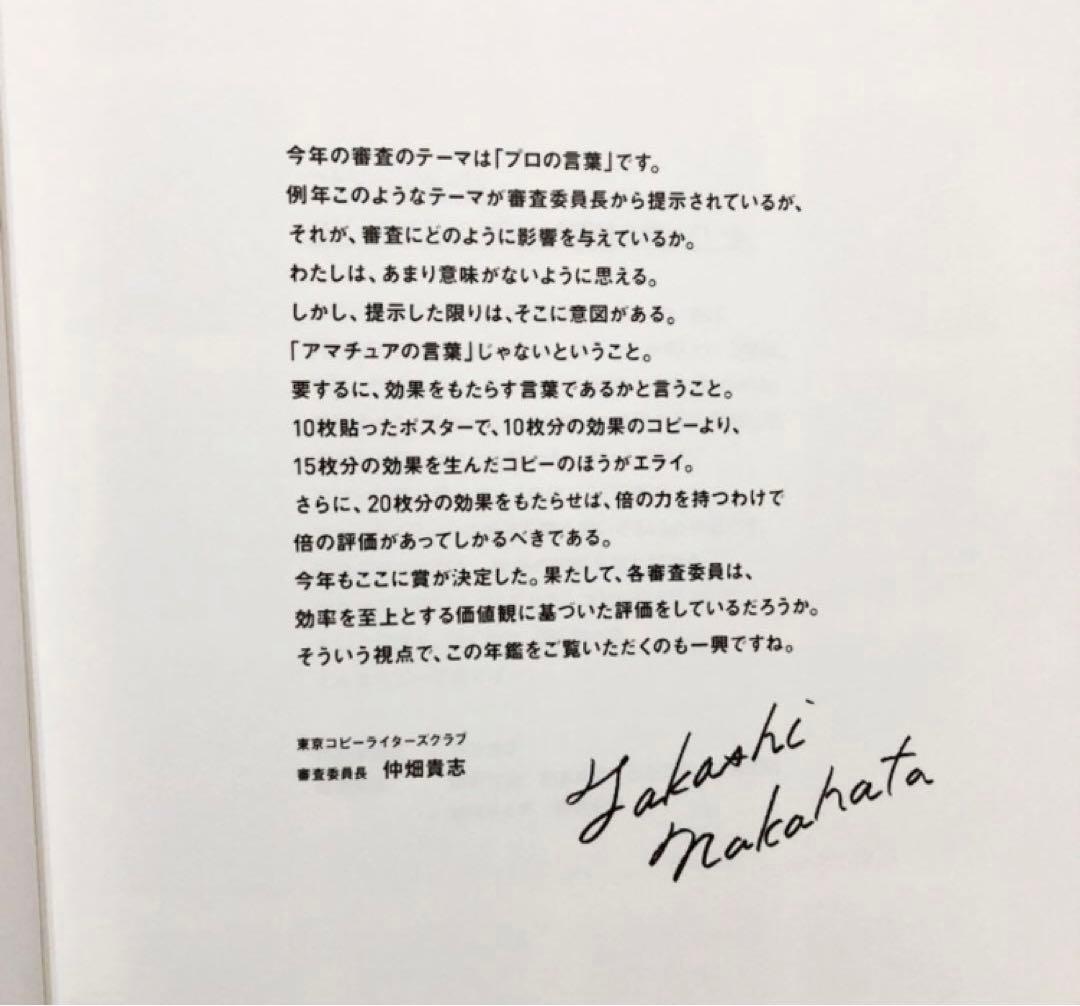 今年の審査のテーマは「プロの言葉」です。
例年このようなテーマが審査委員長から提示されているが、
それが、審査にどのように影響を与えているか。
わたしは、あまり意味がないように思える。
しかし、提示した限りは、そこに意図がある。
「アマチュアの言葉」じゃないということ。
要するに、効果をもたらす言葉であるかと言うこと。
10枚貼ったポスターで、10枚分の効果のコピーより、
15枚分の効果を生んだコピーのほうがエライ。
さらに、20枚分の効果をもたらせば、倍の力を持つわけで
倍の評価があってしかるべきである。
今年もここに賞が決定した。果たして、各審査委員は、
効率を至上とする価値観に基づいた評価をしているだろうか。
そういう視点で、この年鑑をご覧いただくのも一興ですね。
東京コピーライターズクラブ
審査委員長 仲畑貴志
Takashi
Nakahata